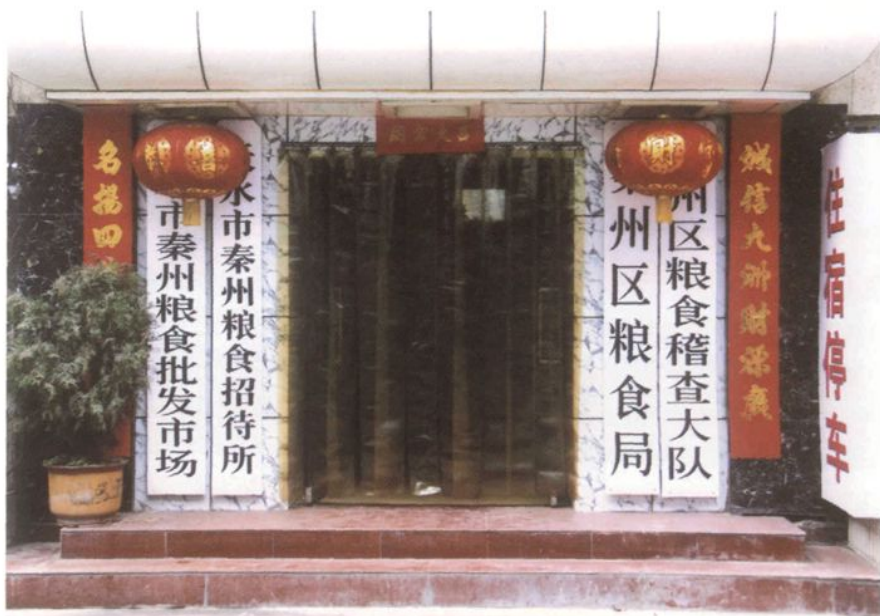 名揚四
市秦州粮食批发市场
水市秦州粮食招待所
州区粮食局
州区粮食稽查大队
誠信九洲財源廣
住宿停车